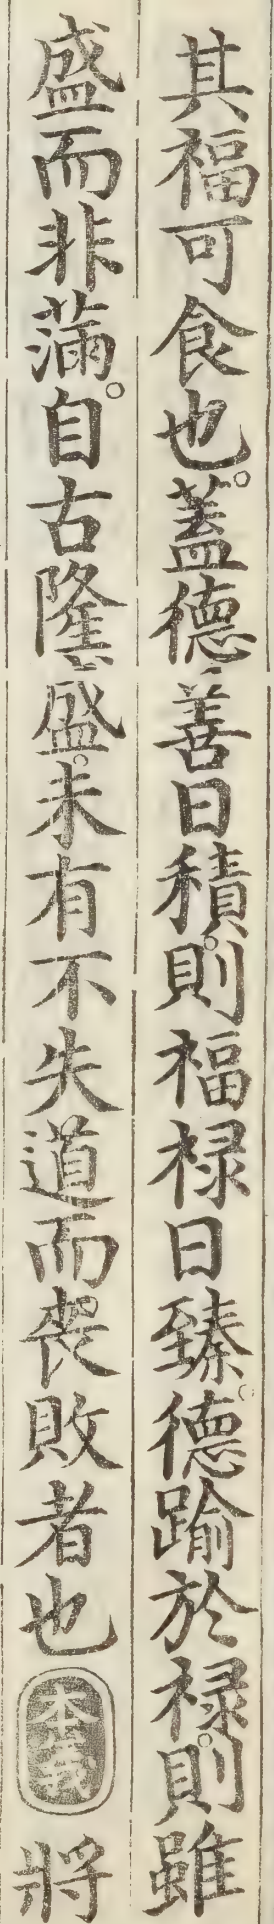 其福可食也。蓋德善日積。則福禄日臻。德踰於禄。則雖
盛而非滿。自古隆盛。未有不失道而喪敗者也 本義 將